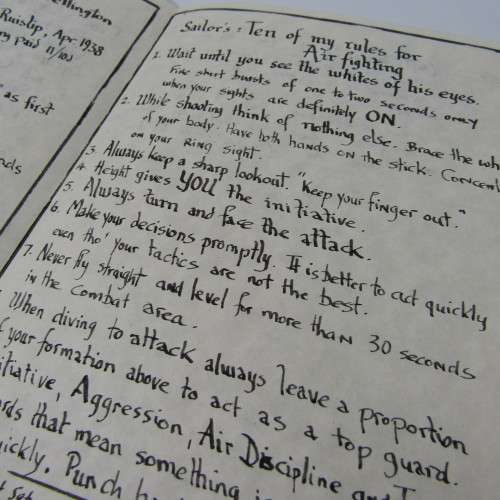 ellington
Ruislip, Apr 1938
paid 11/10d
as first
Sailor's: Ten of my rules for
Air fighting
1. Wait until you see the whites of his eyes.
Fire short bursts of one to two seconds only
when your sights are definitely ON.
2. While shooting think of nothing else. Brace the wh
of your body. Have both hands on the stick. Concen
on your Ring sight.
3. Always keep a sharp lookout. "Keep your finger out."
4 Height gives YOU the initiative.
5. Always turn and face the attack.
6. Make your decisions promptly. It is better to act quickly
even tho' your tactics are not the best.
7. Never fly straight and level for more than 30 seconds
in the combat area.
When diving to attack always leave a proportion
f your formation above to act as a top guard.
itiative, Aggression, Air Discipline and T
rds that mean something i
ickly. Punch h